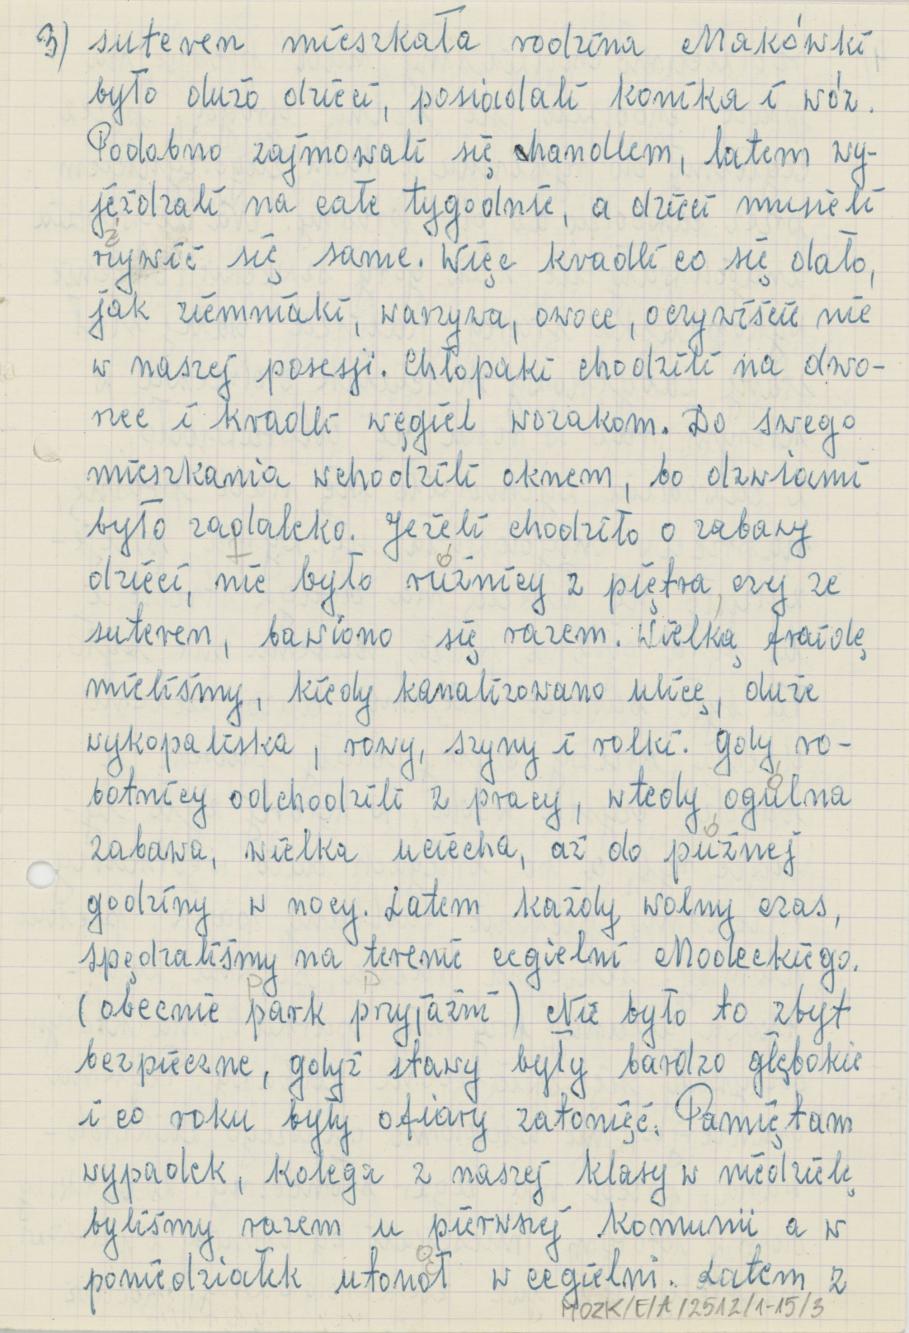 3) suteren mieszkała rodzina Makówki,
było dużo dzieci, posiadali konika i wóz.
Podobno zajmowali się handlem, latem wy-
jeżdzali na całe tygodnie, a dzieci musieli
rzywić się same. Więc kradli co się dało,
jak ziemniaki, warzywa, owoce, oczywiście nie
w naszej posesji. Chłopaki chodzili na dwo-
rzec i kradli węgiel wozakom. Do swego
mieszkania wchodzili oknem, bo dzwiami
było zadaleko. Jeżeli chodziło o zabawy
dzieci, nie było rużnicy z piętra, czy ze
suteren, bawiono się razem. Wielką frajdę
mieliśmy, kiedy kanalizowano ulicę, duże
wykopaliska, rowy, szyny i rolki. Gdy ro-
botnicy odchodzili z pracy, wtedy ogulna
zabawa, wielka uciecha, aż do puźnej
godziny w nocy. Latem każdy wolny czas,
spędzaliśmy na terenie cegielni Modeckiego.
(obecnie park przyjaźni) Nie było to zbyt
bezpieczne, gdyż stawy były bardzo głębokie
i co roku były ofiary zatonięć. Pamiętam
wypadek, kolega z naszej klasy w niedzielę
byliśmy razem u pierwszej komunii a w
poniedziałek utonoł w cegielni. Latem z
MOZK/E/A/2512/1-15/3